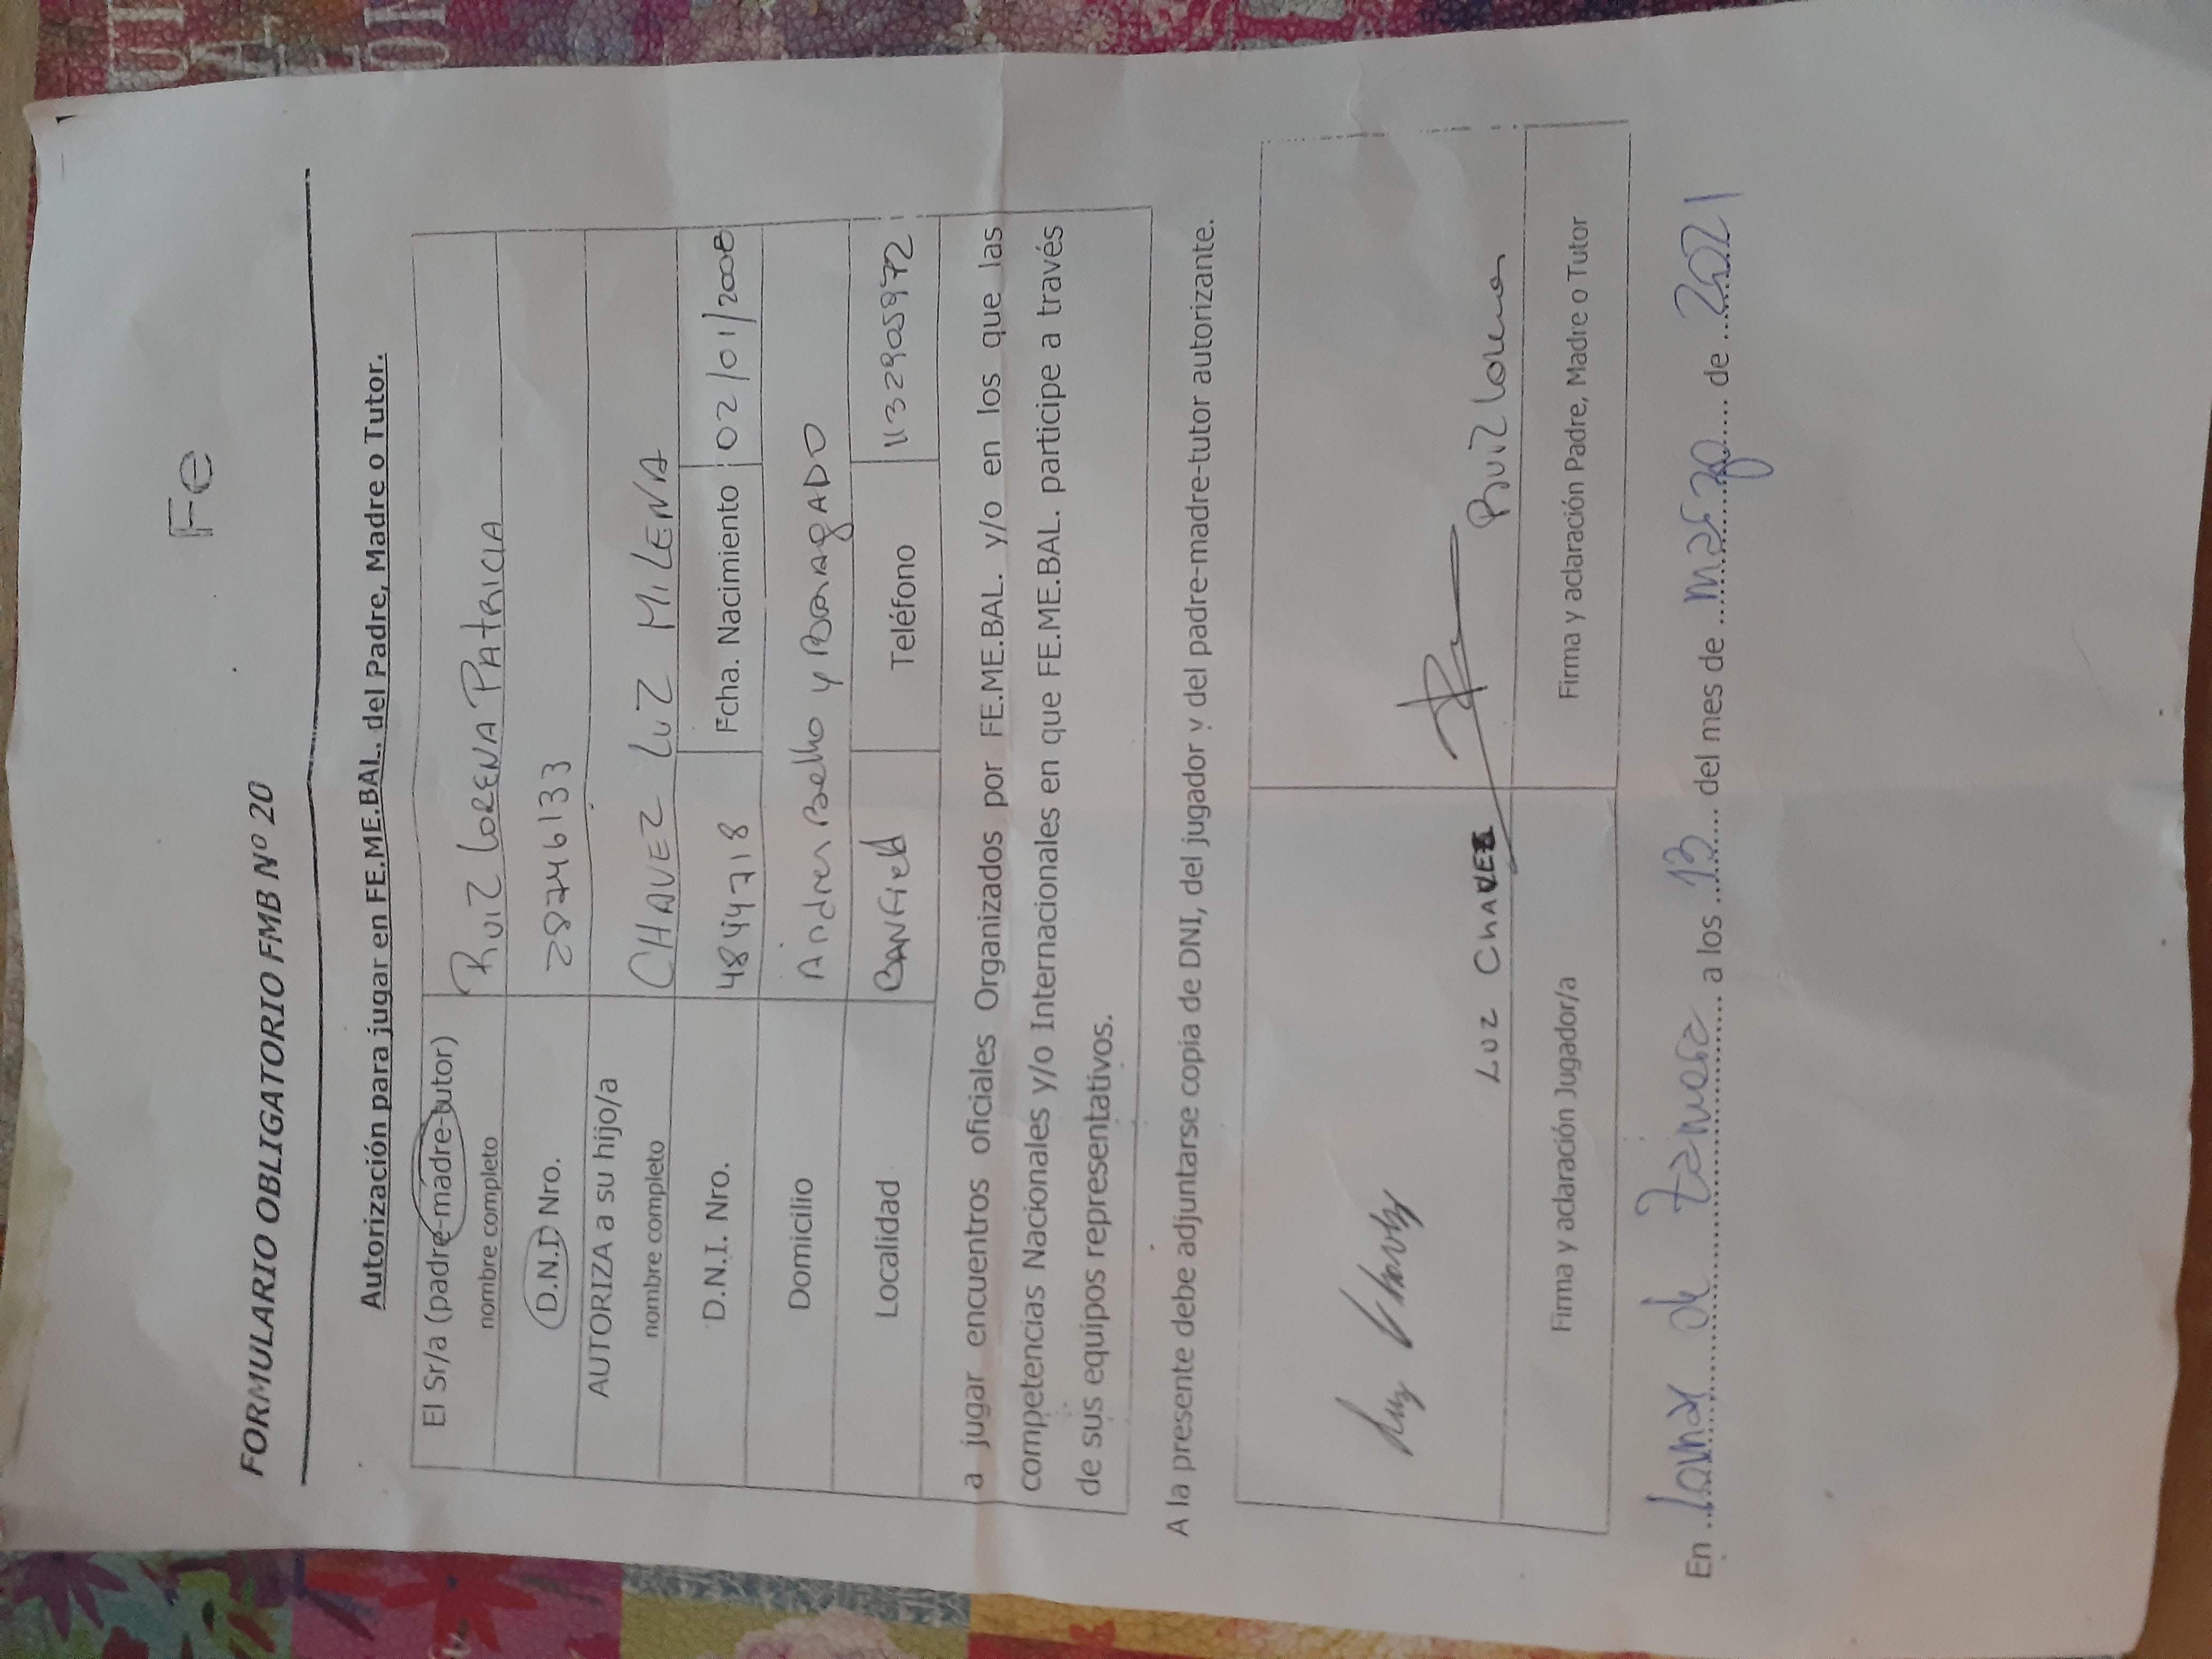 Fe
FORMULARIO OBLIGATORIO FMB Nº 20
Autorización para jugar en FE.ME.BAL. del Padre, Madre o Tutor.
El Sr/a (padre-madre-tutor) nombre completo RUIZ LORENA PATRICIA
D.N.I Nro. 28746133
AUTORIZA a su hijo/a nombre completo CHAVEZ LUZ MILENA
D.N.I. Nro. 48447718 Fcha. Nacimiento 02/01/2008
Domicilio Andres Bello y
Localidad BANFIELD Teléfono 1132905972
a jugar encuentros oficiales Organizados por FE.ME.BAL. y/o en los que las
competencias Nacionales y/o Internacionales en que FE.ME.BAL. participe a través
de sus equipos representativos.
A la presente debe adjuntarse copia de DNI, del jugador y del padre-madre-tutor autorizante.
LUZ CHAVEZ Ruiz Lorena
Firma y aclaración Jugador/a Firma y aclaración Padre, Madre o Tutor
En Lomas de Zamora a los 13 del mes de marzo de 2021